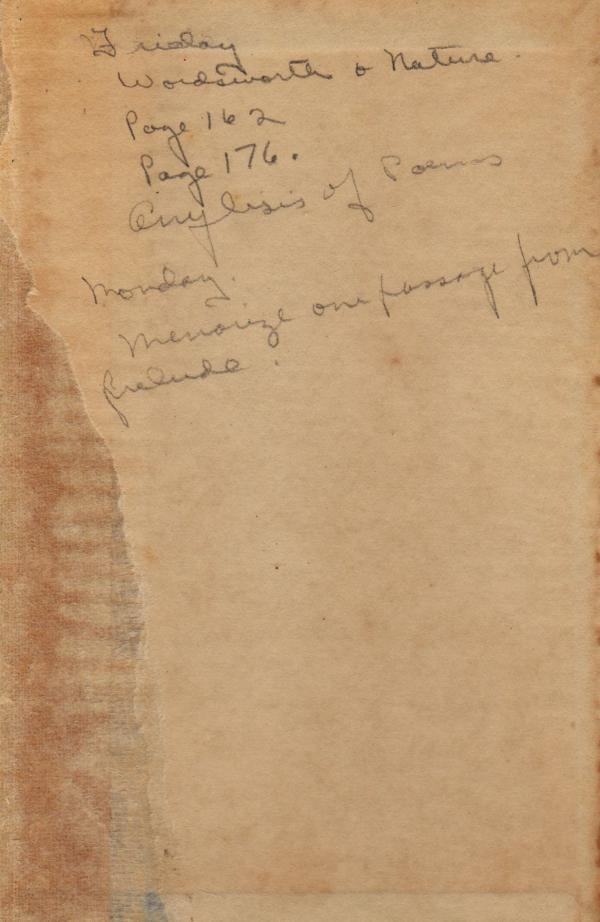 Friday
Wordsworth & Nature.
Page 162
Page 176.
Anylisis of Poems
Monday.
Memorize one passage from
Prelude.